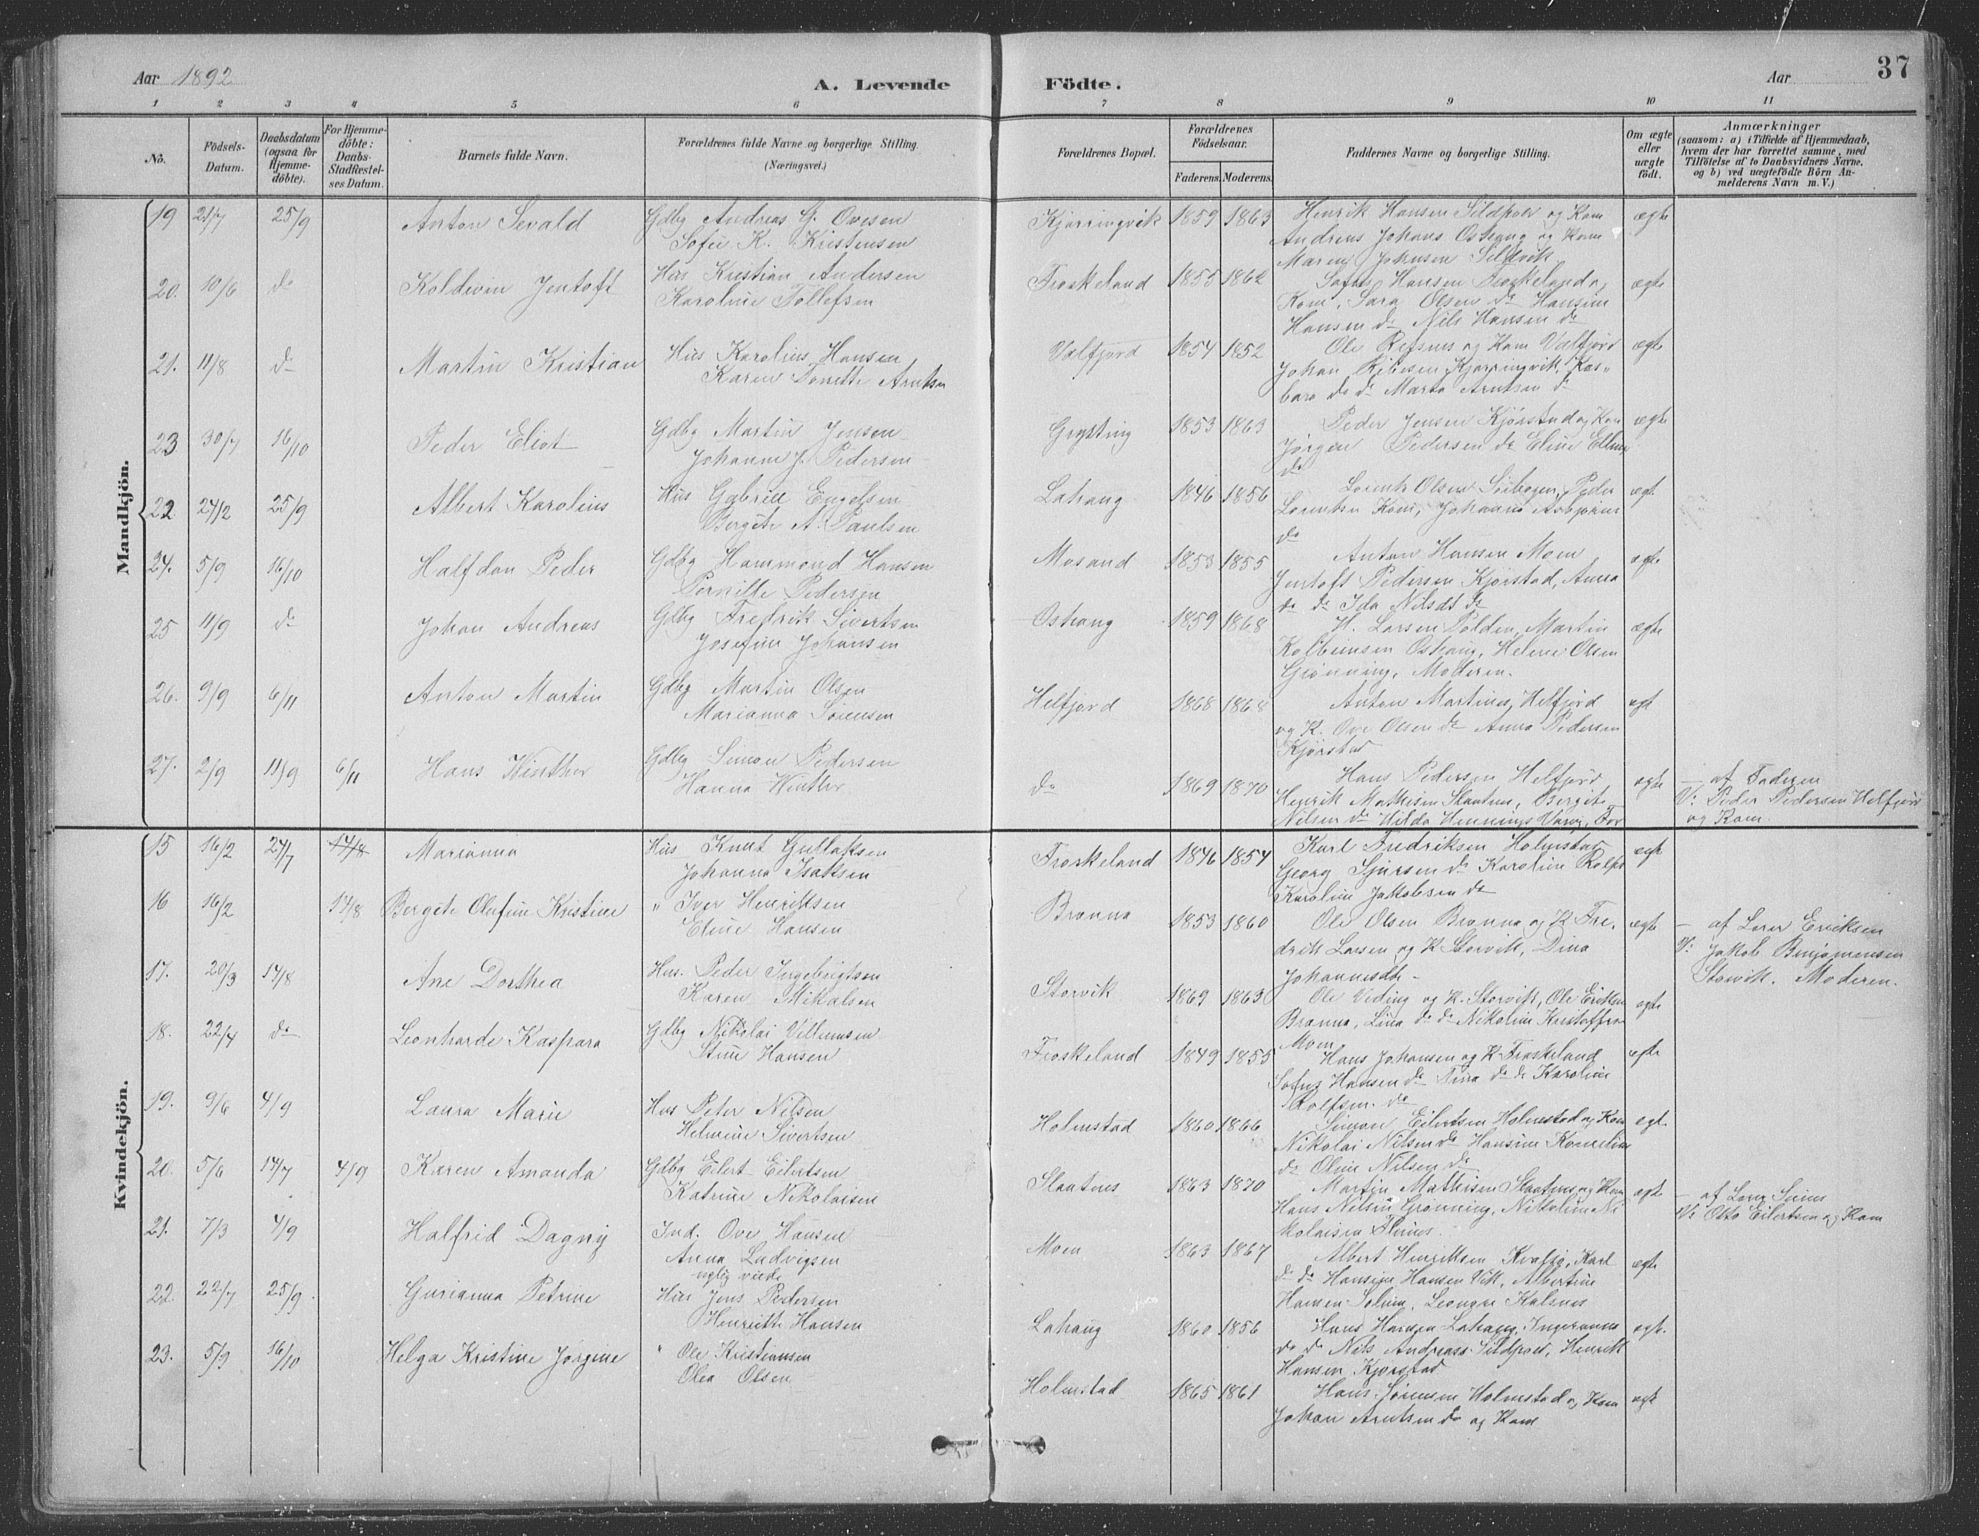 Aar 1892
A. Levende Födte.
Aar
37
1 2 3 4 5 6 7 8 9 10 11
No.
Födsels-Datum.
Daabsdatum (ogsaa for Hjemme-döbte).
For Hjemme-döbte: Daabs-Stadfæstel-ses Datum.
Barnets fulde Navn.
Forældrenes fulde Navne og borgerlige Stilling. (Næringsvei.)
Forældrenes Bopæl.
Forældrenes Födselsaar.
Faderens. Moderens.
Faddernes Navne og borgerlige Stilling.
Om ægte eller uægte födt.
Anmærkninger
(saasom: a) i Tilfælde af Hjemmedaab, hvem der har forrettet samme, med Tilföielse af to Daabsvidners Navne, og b) ved uægtefödte Börn An-melderens Navn m. V.)
Mandkjön.
19 21/7 25/9 Anton Sevald Gdbg Andreas G. Ovesen Kjørringvik 1859 1863 Henrik Hansen Sildpoll og Kone ægte
Sofie K. Kristensen Andreas Johans Oshaug og Kone
Maren Johnsen Sildvik
20. 10/6 do Koldevin Jentoft Hus Kristian Andersen Froskeland 1855 1862 Sofus Hansen Froskeland og ægte
Karoline Tollefsen Kone, Sara Olsen do Hansine
Hansen do Nils Hansen do
21. 11/8 do Martin Kristian Hus Karolius Hansen Valfjord 1854 1852 Ole Refsnes og Kone Valfjord ægte
Karen Tonette Arntsen Johan Kjørringvik, Kas-
bara do do Marta Arntsen do
23 30/7 16/10 Peder Eliot Gdbg Martin Jensen Grytting 1853 1863 Peder Jensen Kjørstad og Kone ægte
Johanna J. Pedersen Jørgen Pedersen do Eline
do
22 24/2 25/9 Albert Karolius Hus Gabriel Engelsen Lahaug 1846 1856 Lorents Olsen Peder ægte
Bergite A. Paulsen Lorentsen Kone, Johanna
do
24. 5/9 16/10 Halfdan Peder Gdbg Hammond Hansen Mosand 1853 1855 Anton Hansen Moen ægte
Pernille Pedersen Jentoft Pedersen Kjørstad, Anna
do do Ida Nilsdt do
25 11/9 do Johan Andreas Gdbg Fredrik Sivertsen Oshaug 1859 1868 H. Larsen Polden, Martin ægte
Josefine Johansen Kolbeinsen Oshaug, Helene Olsen
Grønning, Moderen.
26. 9/9 6/11 Anton Martin Gdbg Martin Olsen Helfjord 1868 1868 Anton Martines, Helfjord egt
Marianna Sørensen og K. Ove Olsen do Anna Pedersen
Kjørstad
27. 2/9 11/9 6/11 Hans Winther Gdbg Simon Pedersen do 1869 1870 Hans Pedersen Helfjord egte — af Faderen
Hanna Winther Henrik Mathisen Slaatnes, Bergite V: Peder Pedersen Helfjord
Nilsen do Hilda Hennings og Kone.
Kvindekjön.
15 16/2 24/7 14/8 Marianna Hus Knut Gullaksen Froskeland 1846 1854 Karl Fredriksen Holmstad egt
Johanna Isaksen Georg Sjursen do Karoline
Karoline Jakobsen do
16 16/2 14/8 Bergite Olufine Kristine " Iver Henriksen Brønna 1853 1860 Ole Olsen Brønna og K Fre- ægte — af Lærer Eriksen
Eline Hansen drik Larsen og K Storvik, Dina V: Jakob
Johannesdt. Storvik. Moderen.
17. 20/3 14/8 Ane Dorthea Hus. Peder Ingebrigtsen Storvik 1869 1863 Ole og K. Storvik, Ole Eriksen egte
Karen Mikalsen Brønna, Lina do do Nikoline Kristoffers
Moen
18. 22/4 do Leonharde Kaspara Gdbg Nikolai Villumsen Froskeland 1849 1855 Hans Johansen og K Froskeland ægte
Stine Hansen Sofus Hansen do do do Karoline
Rolfsen do
19. 9/6 4/9 Laura Marie Hus Peter Nilsen Holmstad 1860 1866 Simon Eilertsen Holmstad og Kone egt.
Helmine Sivertsen Nikolai Nilsen do Hansine Kornelius
do Oline Nilsen do
20. 5/6 14/7 4/9 Karen Amanda Gdbg Eilert Eilertsen Slaatnes 1863 1870 Martin Mathisen Slaatnes og Kone ægte — af
Katrine Nikolaisen Hans Nilsen Grønning, Nikoline Ni- V: Otto Eilertsen og Kone
kolaisen
21. 7/3 4/9 Halfrid Dagny Ind. Ove Hansen Moen 1863 1867 Albert Henriksen Karl ægte
Anna Ludvigsen do do Hansine Hansen Vik, Albertine
Hansen
22. 22/7 25/9 Gurianna Petrine Hus Jens Pedersen Lahaug 1860 1856 Hans Hansen Lahaug, Ingeranna egt.
Henriette Hansen do do Nils Andreass. Sildpoll, Henrik
Hansen Kjørstad
23. 5/9 16/10 Helga Kristine Jørgine " Ole Kristiansen Holmstad 1865 1861 Hans Sørensen Holmstad og Kone egt
Olea Olsen Johan Arntsen do og Kone